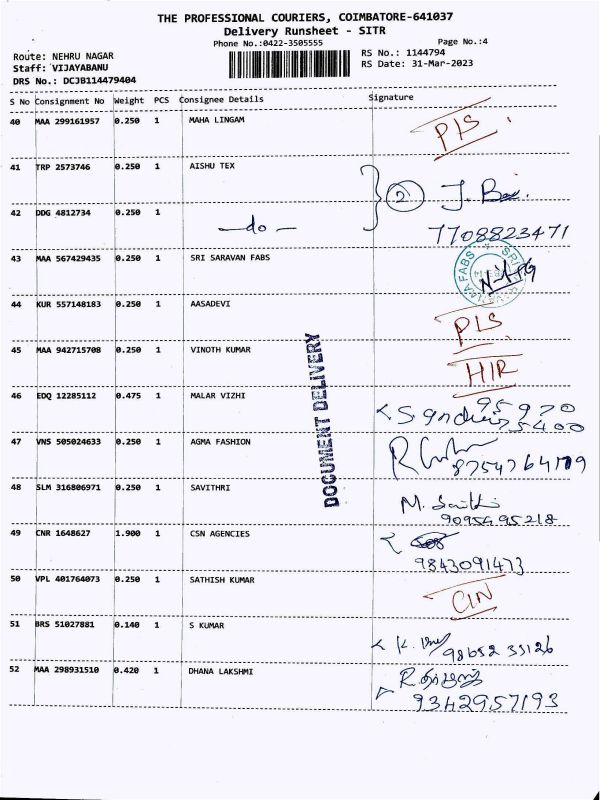 THE PROFESSIONAL COURIERS, COIMBATORE-641037
Delivery Runsheet - SITR
Phone No.:0422-3505555 Page No.:4
Route: NEHRU NAGAR RS No.: 1144794
Staff: VIJAYABANU RS Date: 31-Mar-2023
DRS No.: DCJB114479404
S No Consignment No Weight PCS Consignee Details Signature
40 MAA 299161957 0.250 1 MAHA LINGAM P/S
41 TRP 2573746 0.250 1 AISHU TEX
2 J.
42 DDG 4812734 0.250 1 —do— 7708823471
43 MAA 567429435 0.250 1 SRI SARAVAN FABS
44 KUR 557148183 0.250 1 AASADEVI P/S
45 MAA 942715708 0.250 1 VINOTH KUMAR H/R
DOCUMENT DELIVERY
46 EDQ 12285112 0.475 1 MALAR VIZHI 95970
75400
47 VNS 505024633 0.250 1 AGMA FASHION
48 SLM 316806971 0.250 1 SAVITHRI M.
9095495218
49 CNR 1648627 1.900 1 CSN AGENCIES
9843091473
50 VPL 401764073 0.250 1 SATHISH KUMAR C/N
51 BRS 51027881 0.140 1 S KUMAR K.
98652 33126
52 MAA 298931510 0.420 1 DHANA LAKSHMI
9342957193